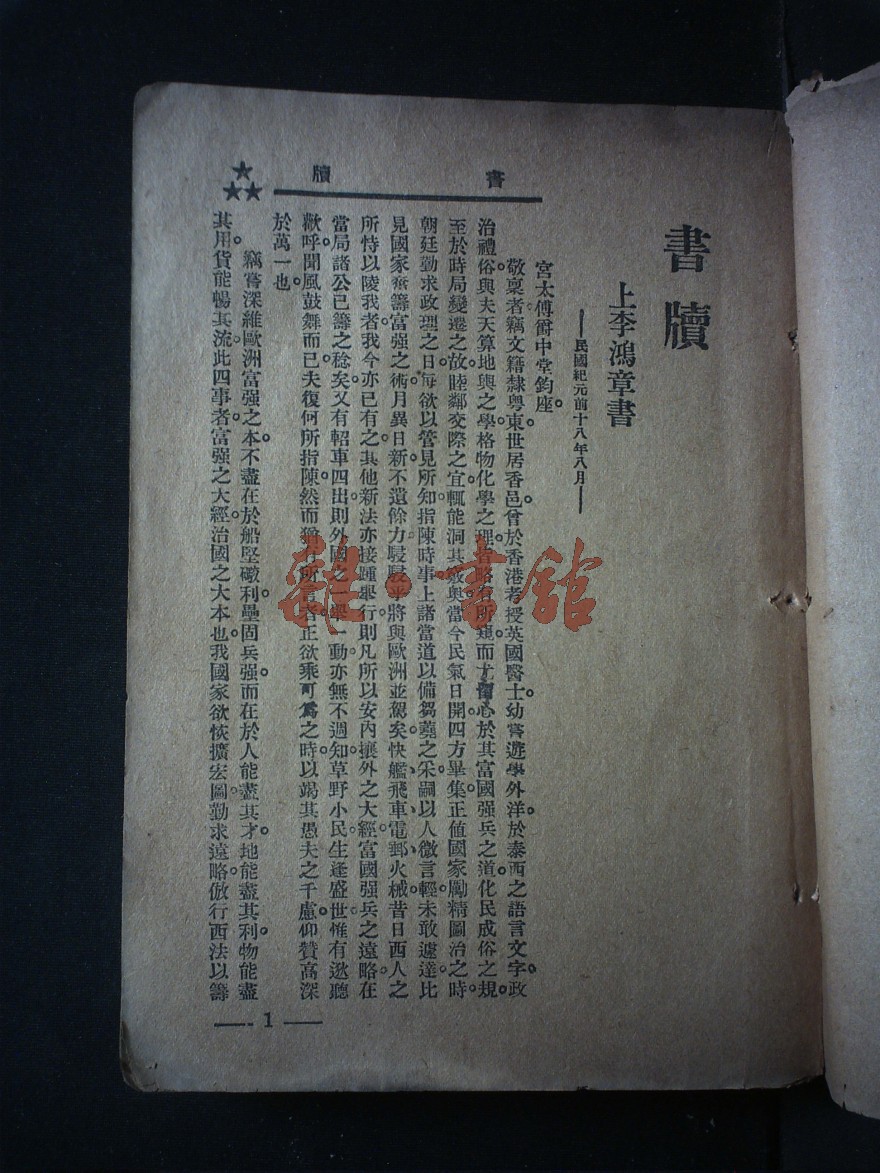 書牘
書牘
上李鴻章書
——民國紀元前十八年八月——
宮太傅爵中堂鈞座。
敬稟者竊文籍隸粤東世居香邑曾於香港考授英國醫士。幼嘗遊學外洋。於泰西之語言文字。政
治禮俗。與夫天算地輿之學。格物化學之理。皆略有所窺。而尤留心於其富國强兵之道。化民成俗之規。
至於時局變遷之故。睦鄰交際之宜。輒能洞其竅奥。當今民氣日開四方畢集。正値國家勵精圖治之時。
朝廷勤求政理之日。每欲以管見所知指陳時事上諸當道以備芻蕘之采。嗣以人微言輕。未敢遽達。比
見國家奮籌富强之術。月異日新不遺餘力。駸駸乎將與歐洲並駕矣。快艦、飛車、電郵、火械。昔日西人之
所恃以陵我者。我今亦已有之。其他新法亦接踵舉行。則凡所以安內攘外之大經。富國强兵之遠略。在
當局諸公已籌之稔矣。又有軺車四出。則外國之一舉一動。亦無不週知。草野小民生逢盛世。惟有逖聽
歡呼聞風鼓舞而已。夫復何所指陳。然而猶有所言者。正欲乘可爲之時。以竭其愚夫之千慮。仰贊高深
於萬一也。
竊嘗深維歐洲富强之本。不盡在於船堅礮利壘固兵强。而在於人能盡其才。地能盡其利。物能盡
其用。貨能暢其流。此四事者。富强之大經治國之大本也。我國家欲恢擴宏圖。勤求遠略。倣行西法以籌
— 1 —
雜·書館